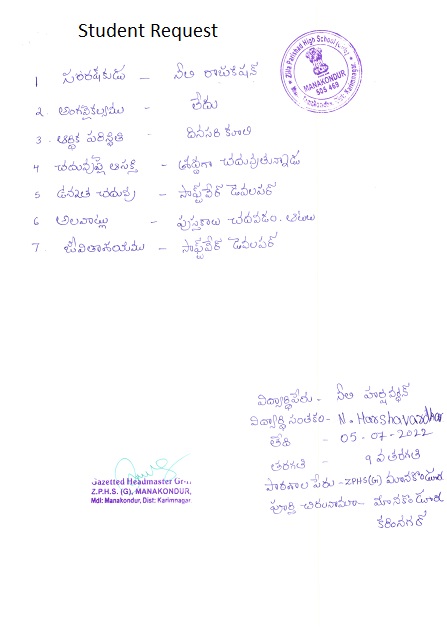 Student Request
1 సంరక్షకుడు - నీలి రాజుకిషన్
2. అంగవైకల్యము - లేదు
3. ఆర్థిక పరిస్థితి - దినసరి కూలి
4 చదువుపై ఆసక్తి - శ్రద్ధగా చదువుతున్నాడు
5 చదువు - సాఫ్ట్‌వేర్ డెవలపర్
6 అలవాట్లు - పుస్తకాలు చదవడం. ఆటలు
7. జీవితాశయము - సాఫ్ట్‌వేర్ డెవలపర్
Zilla Parishad High School
MANAKONDUR
505 469
విద్యార్థిపేరు - నీలి హర్షవర్ధన్
విద్యార్థి సంతకం - N. Harshavardhan
తేది - 05-07-2022
తరగతి - 9 వ తరగతి
పాఠశాల పేరు - ZPHS(G) మానకొండూర్
పూర్తి చిరునామా - మానకొండూర్
కరీంనగర్
Gazetted Headmaster Gr-II
Z.P.H.S. (G), MANAKONDUR,
Mdl: Manakondur, Dist: Karimnagar.